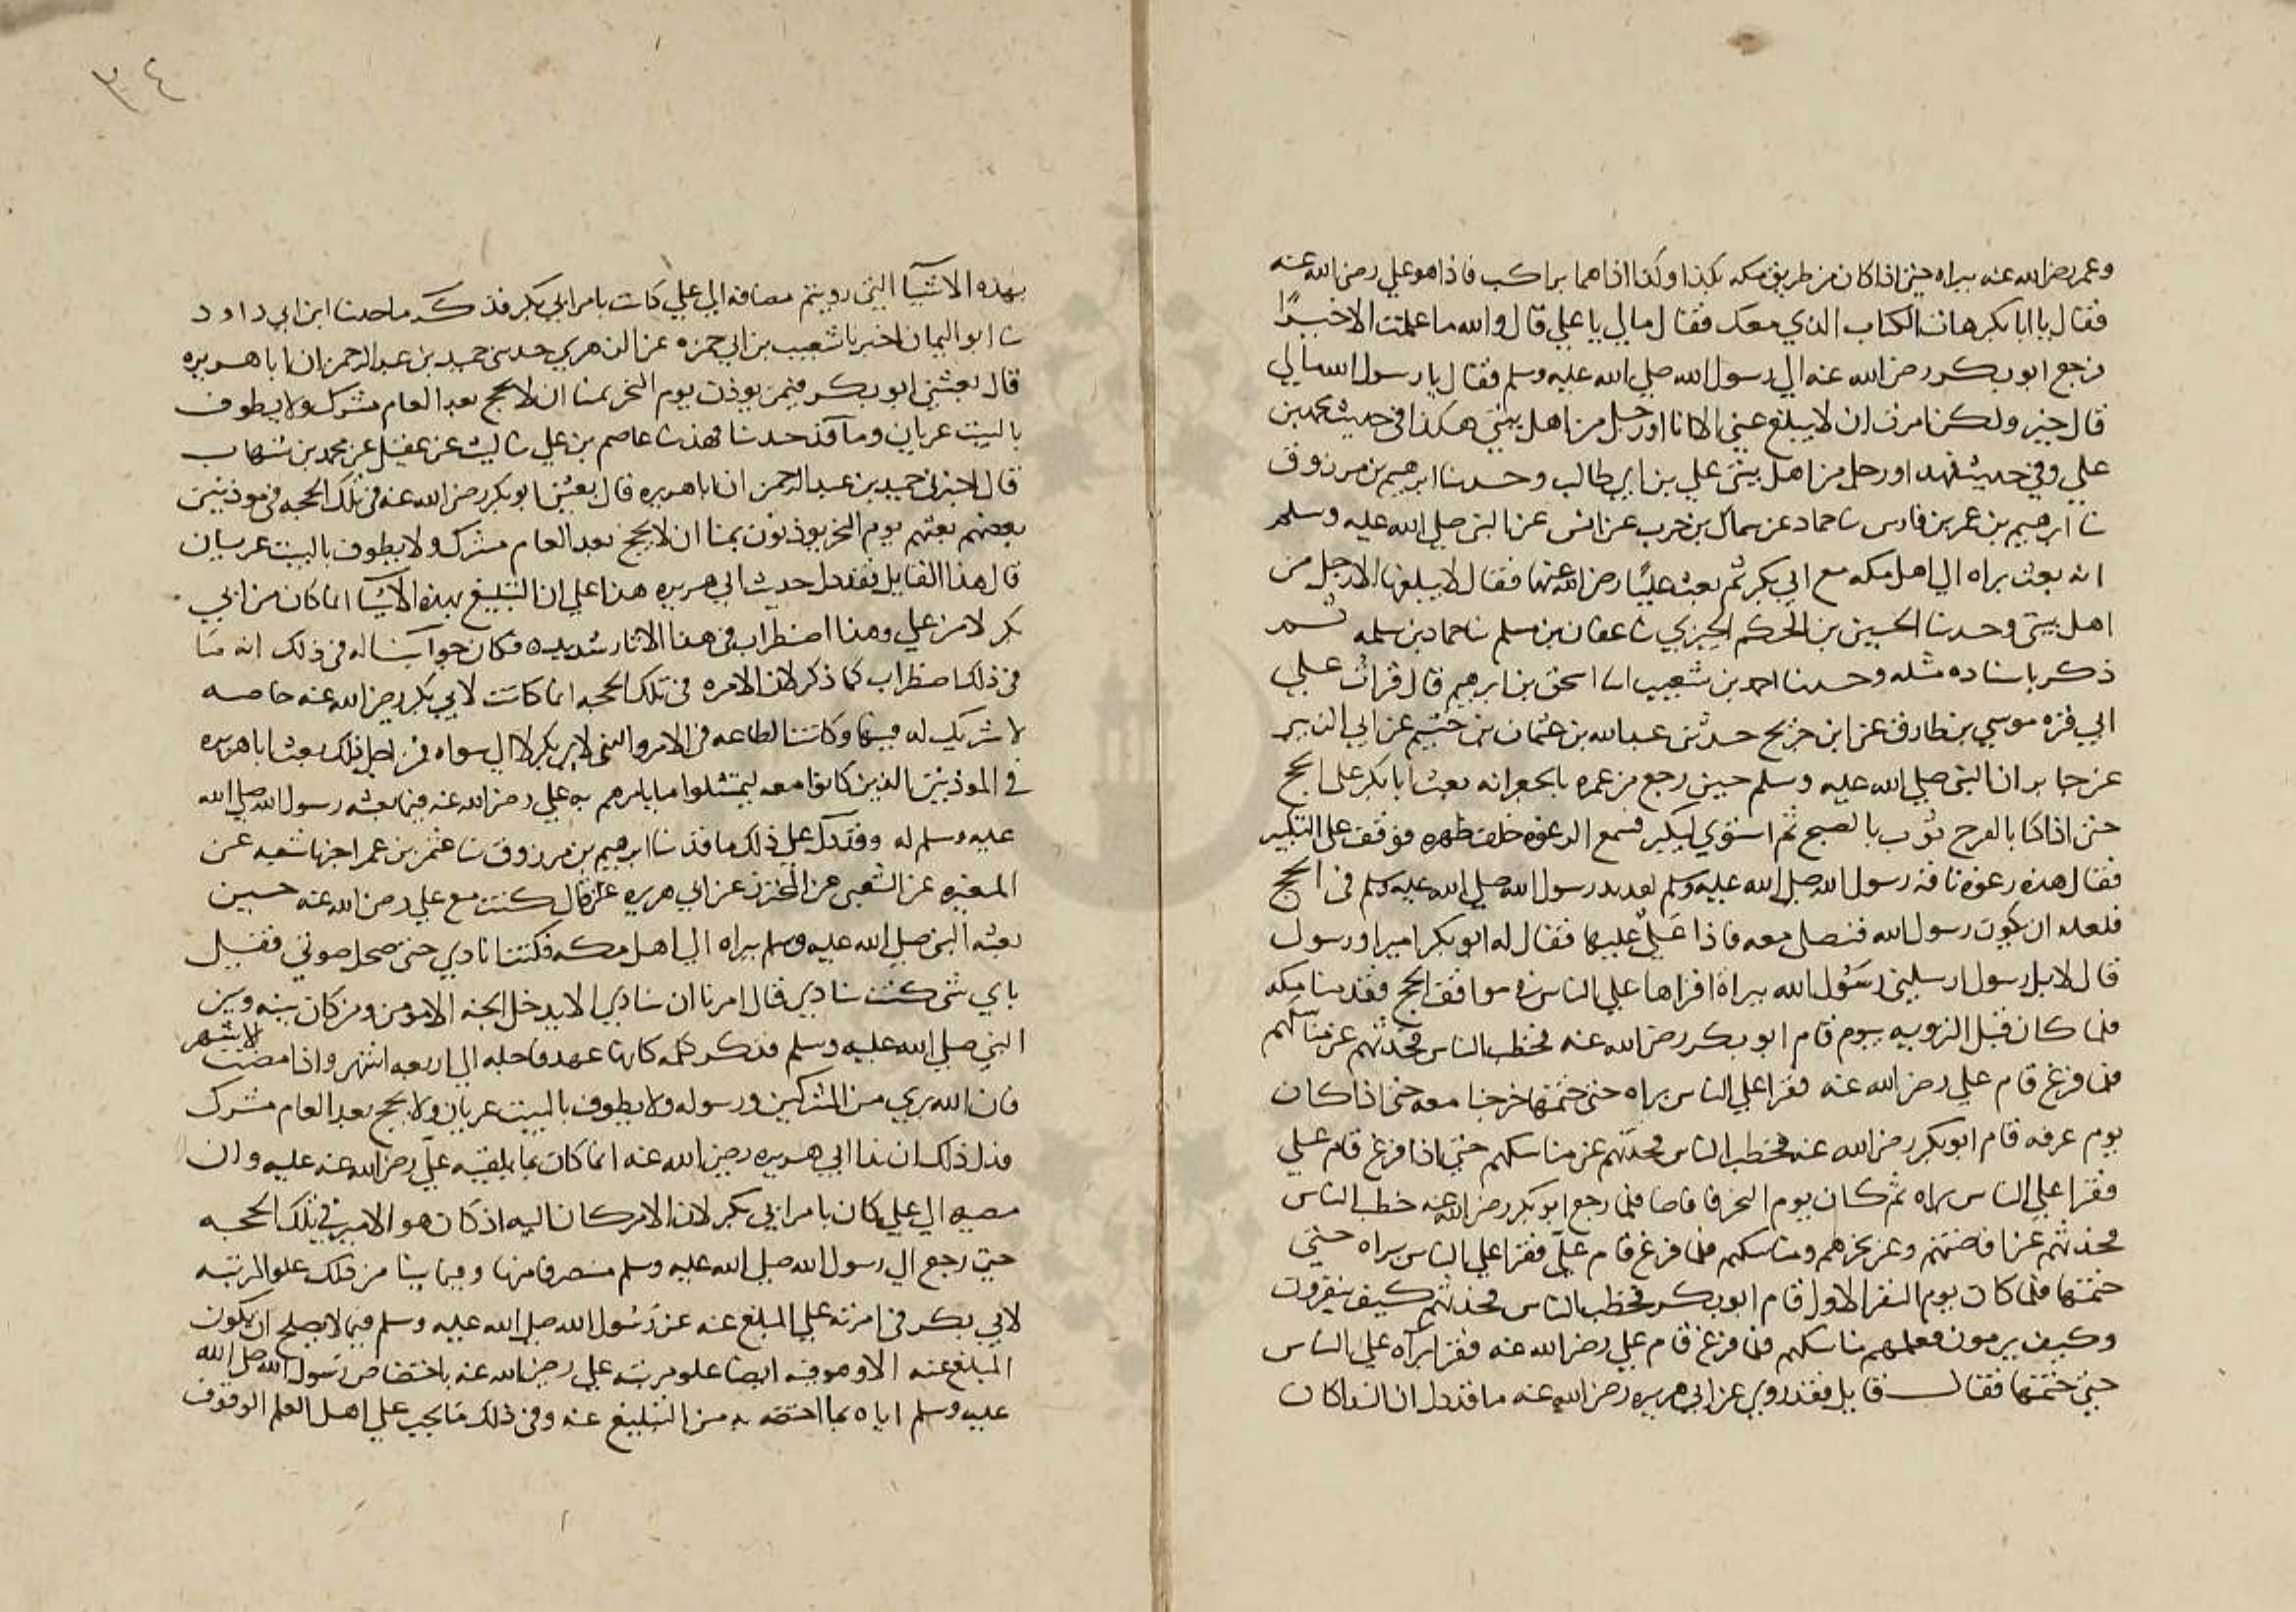 وعمر رضي الله عنه ببراه حتى اذا كان من طريق مكه بكذا وكذا اذا هما براكب فاذا هو علي رضي الله عنه
فقال يا ابا بكر هات الكتاب الذي معك فقال مالي يا علي قال والله ما علمت الا خيرًا
فرجع ابو بكر رضي الله عنه الي رسول الله صلي الله عليه وسلم فقال يا رسول الله مالي
قال خير ولكن امرت ان لا يبلغ عني الا انا او رجل من اهل بيتي هكذا في حديث محمد بن
علي وفي حديث فهد او رجل من اهل بيتي علي بن ابي طالب وحدثنا ابرهيم بن مرزوق
ثنا ابرهيم بن عمر بن فارس ثنا حماد عن سماك بن حرب عن انس عن النبي صلي الله عليه وسلم
انه بعث براه الي اهل مكه مع ابي بكر ثم بعث عليًا رضي الله عنهما فقال لا يبلغها الا رجل من
اهل بيتي وحدثنا الحسين بن الحكم الحيزي ثنا عفان بن مسلم ثنا حماد بن سلمه ثم
ذكر باسناده مثله وحدثنا احمد بن شعيب انا اسحق بن ابرهيم قال قرات علي
ابي قره موسي بن طارق عن ابن جريج حدثني عبد الله بن عثمان بن خثيم عن ابي الزبير
عن جابر ان النبي صلي الله عليه وسلم حين رجع من عمره بالجعرانه بعث ابا بكر علي الحج
حتى اذا كنا بالعرج ثوب بالصبح ثم استوي ليكبر فسمع الرغوه خلف ظهره فوقف علي التكبير
فقال هذه رغوه ناقه رسول الله صلي الله عليه وسلم لقد بدا لرسول الله صلي الله عليه وسلم في الحج
فلعله ان يكون رسول الله فنصلي معه فاذا عَليٌ عليها فقال له ابو بكر امير او رسول
قال لا بل رسول ارسلني رسُول الله ببراة اقراها علي الناس في مواقف الحج فقدمنا مكه
فلما كان قبل الترويه بيوم قام ابو بكر رضي الله عنه فخطب الناس فحدثهم عن مناسكهم
فلما فرغ قام علي رضي الله عنه فقرا علي الناس براه حتى ختمها خرجنا معه حتى اذا كان
يوم عرفه قام ابو بكر رضي الله عنه فخطب الناس فحدثهم عن مناسكهم حتى اذا فرغ قام علي
فقرا علي الناس براه ثم كان يوم النحر فافاضنا فلما رجع ابو بكر رضي الله عنه خطب الناس
فحدثهم عن افاضتهم وعن نحرهم ومناسكهم فلما فرغ قام عليّ فقرا علي الناس براه حتى
ختمها فلما كان يوم النفر الاول قام ابو بكر فخطب الناس فحدثهم كيف ينفرون
وكيف يرمون فعلمهم مناسكهم فلما فرغ قام علي رضي الله عنه فقرا براه علي الناس
حتى ختمها فقال قايل فقد روي عن ابي هريره رضي الله عنه ما قد دل ان النداكان
٣٤
بهذه الاشيا التي رويتم مضافه الي علي كانت بامر ابي بكر فذكر ما حدثنا ابن ابي داود
ثنا ابو اليمان اخبرنا شعيب بن ابي حمزه عن الزهري حدثني حميد بن عبد الرحمن ان ابا هريره
قال بعثني ابو بكر فيمن يوذن يوم النحر بمنا ان لا يحج بعد العام مشرك ولا يطوف
بالبيت عريان وما قد حدثنا فهد ثنا عاصم بن علي ثنا ليث عن عقيل عن محمد بن شهاب
قال اخبرني حميد بن عبد الرحمن ان ابا هريره قال بعثني ابو بكر رضي الله عنه في تلك الحجه في موذنين
بعضهم بعثهم يوم النحر يوذنون بمنا ان لا يحج بعد العام مشرك ولا يطوف بالبيت عريان
قال هذا القايل فقد دل حديث ابي هريره هذا علي ان التبليغ بهذه الاشيا انما كان من ابي
بكر لا من علي وهذا اضطراب في هذا الاثار شديد فكان جوابنا له في ذلك انه ما
في ذلك اضطراب كما ذكر لان الامره في تلك الحجه انما كانت لابي بكر رضي الله عنه خاصه
لا شريك له فيها وكانت الطاعه في الامر والنهي لابي بكر لا الي سواه فمن اجل ذلك بعث ابا هريره
في الموذنين الذين كانوا معه ليمتثلوا ما يامرهم به علي رضي الله عنه فيما بعثه رسول الله صلي الله
عليه وسلم له وقد دل علي ذلك ما قد ثنا ابرهيم بن مرزوق ثنا عثمن بن عمر اخبرنا شعبه عن
المغيره عن الشعبي عن المحرر عن ابي هريره قال كنت مع علي رضي الله عنه حين
بعثه النبي صلي الله عليه وسلم ببراه الي اهل مكه فكنت انادي حتى صحل صوتي فقيل
باي شي كنت تنادي قال امرنا ان ننادي الا يدخل الجنه الا مومن ومن كان بينه وبين
النبي صلي الله عليه وسلم فذكر كلمه كانها عهد فاجله الي اربعه اشهر واذا مضت الاشهر
فان الله بري من المشركين ورسوله ولا يطوف بالبيت عريان ولا يحج بعد العام مشرك
فدل ذلك ان ندا ابي هريره رضي الله عنه انما كان بما يلقيه عليّ رضي الله عنه عليه وان
مصيره الي علي كان بامر ابي بكر لان الامر كان اليه اذ كان هو الامير في تلك الحجه
حتى رجع الي رسول الله صلي الله عليه وسلم منصرفا منها وفيما بينا من ذلك علو المرتبه
لابي بكر في امرته علي المبلغ عنه عن رسُول الله صلي الله عليه وسلم فيما لا يصلح ان يكون
المبلغ عنه الا هو وفيه ايضا علو مرتبه علي رضي الله عنه باختصاص رسُول الله صلي الله
عليه وسلم اياه بما اختصه به من التبليغ عنه وفي ذلك ما يجب علي اهل العلم الوقوف